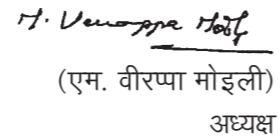 M. Veerappa Moily
(एम. वीरप्पा मोइली)
अध्यक्ष